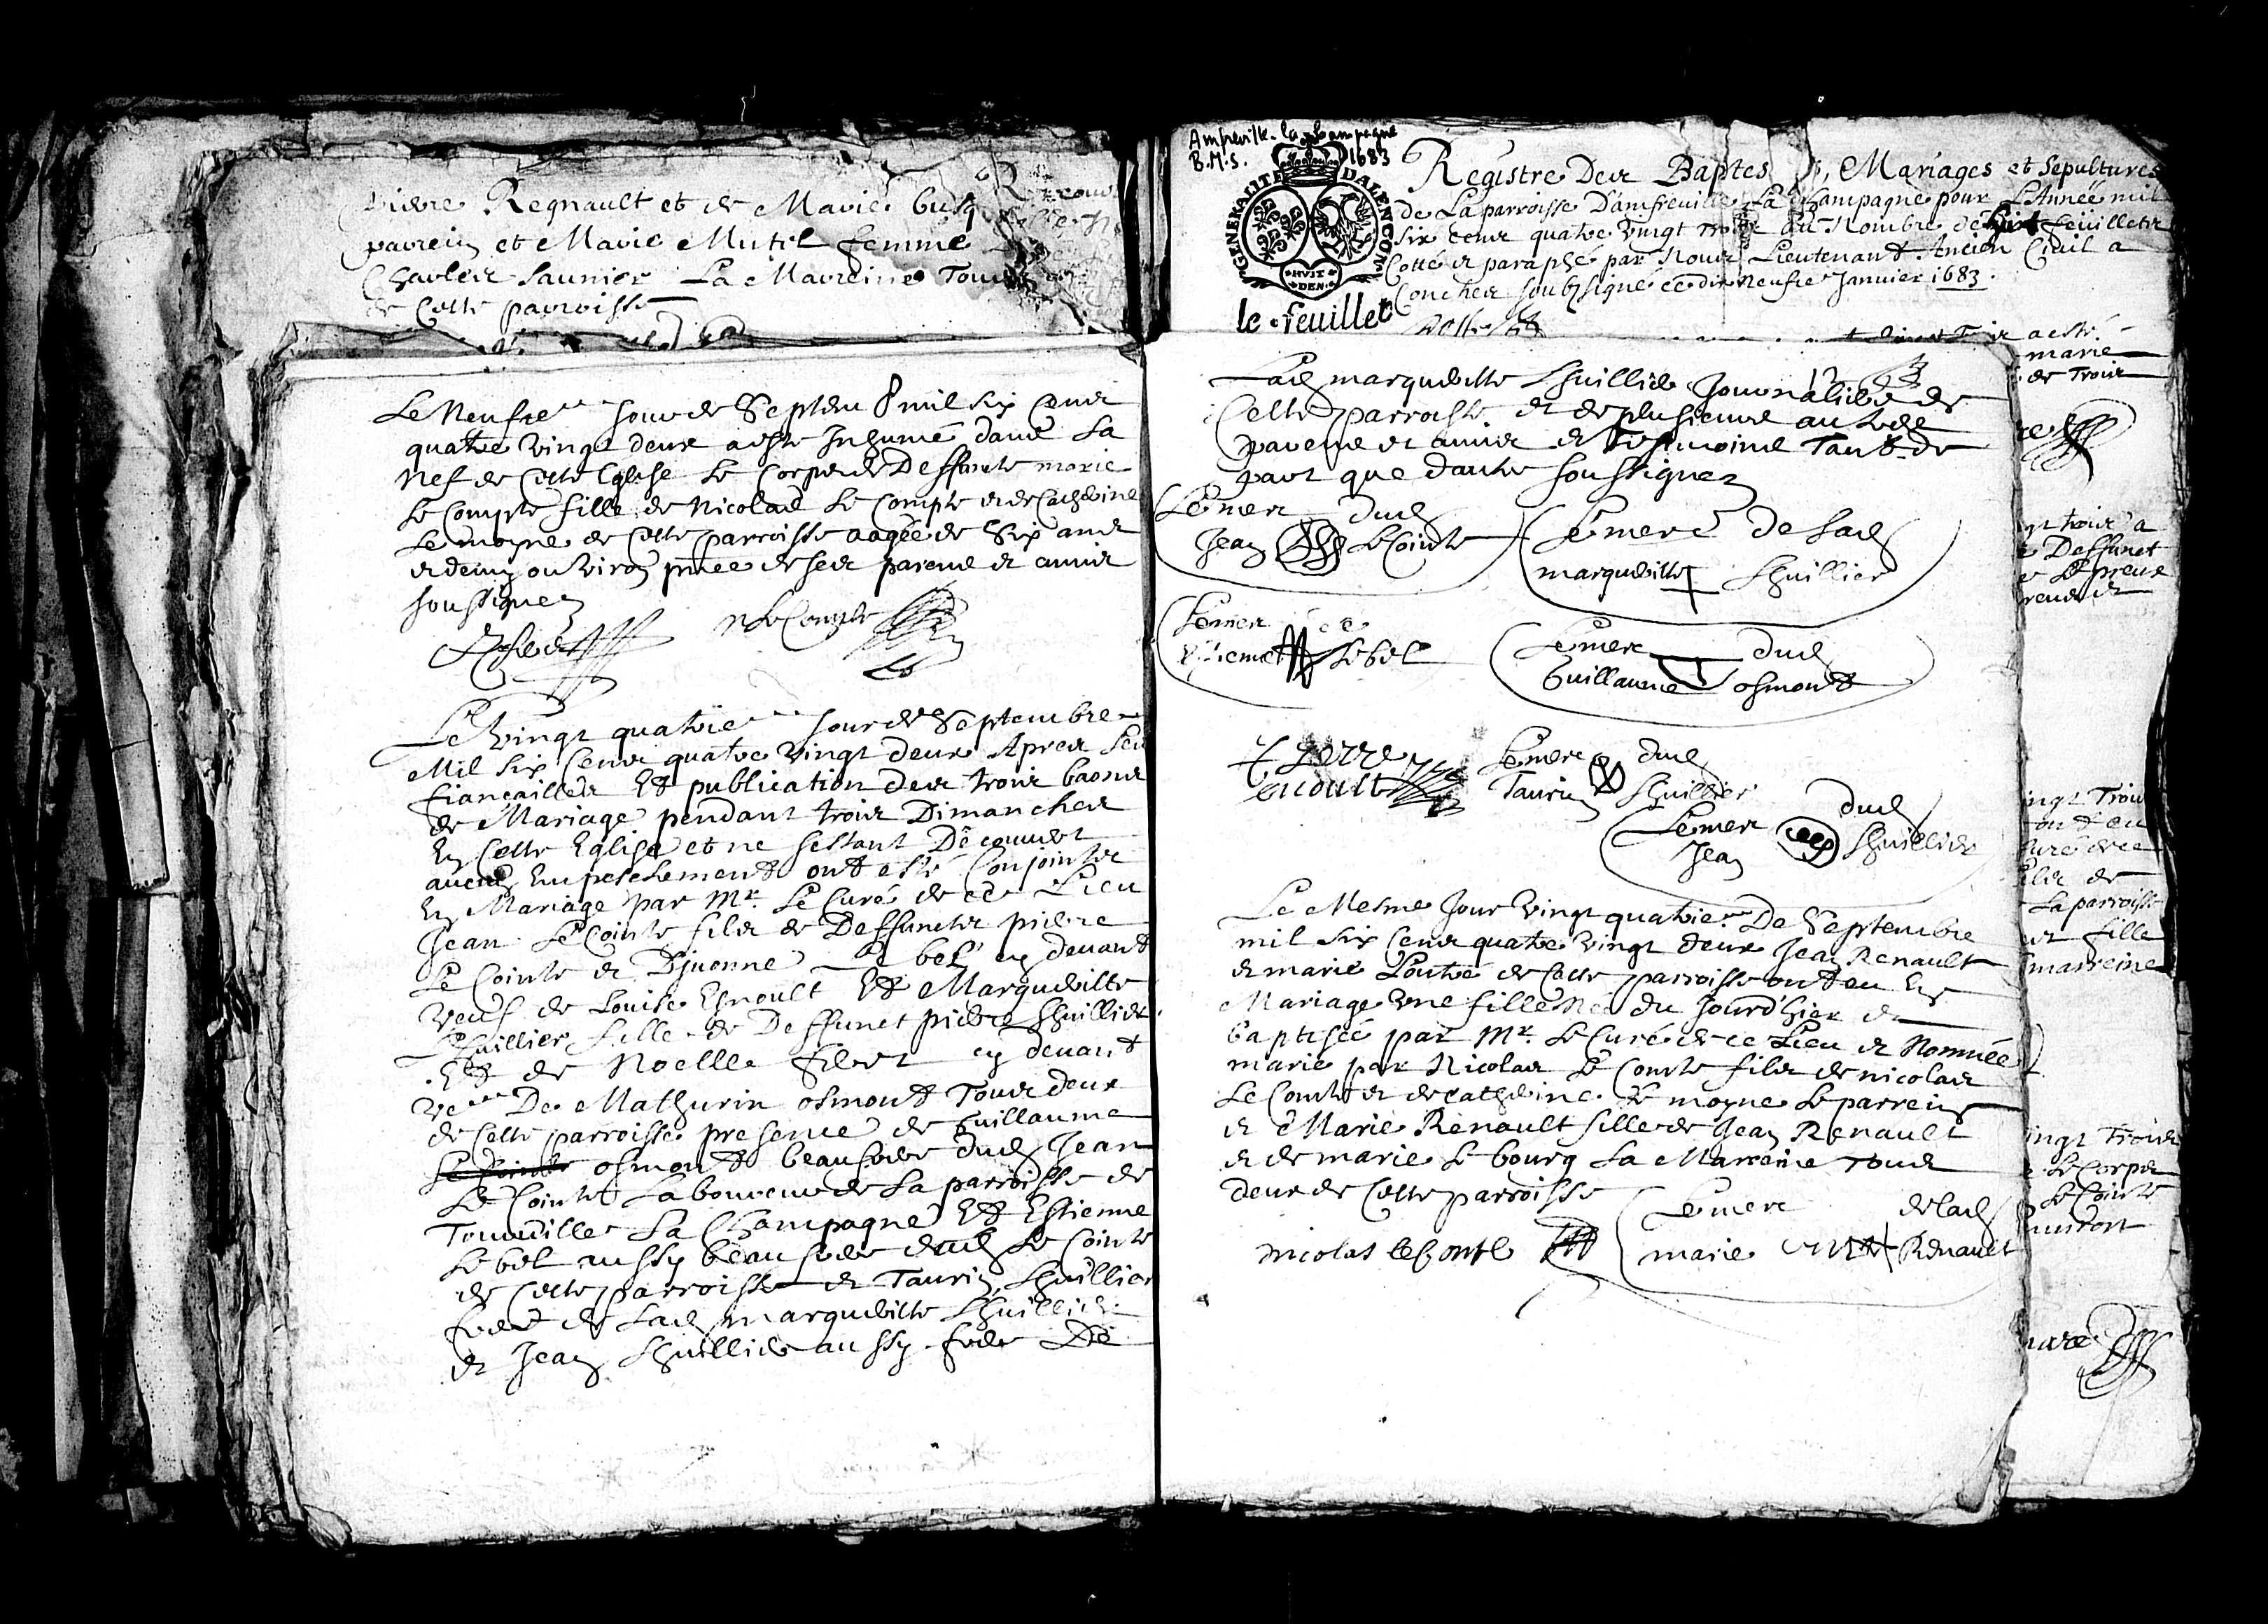 Regnault et de Marie
parrein et Marie Mutel femme
Charles Saunier La Mareine Tous
de Cette parroisse
Le Neufie jour de Septem mil six Cens
quatre vingt deux a este Inhumé dans La
Nef de Cette Eglise Le Corps de Deffuncte marie
Le Compte fille de Nicolas Le Compte et de Catherine
Le moyne de Cette parroisse aagée de Six ans
et demy ou viron pnce de ses parens et amis
soussignez
N Le Compte
Le Vingt quatrie jour de Septembre
Mil six Cens quatre vingt deux Apres Les
fiançailles Et publication des trois bans
de Mariage pendant trois Dimanches
En Cette Eglise et ne sestant Découvert
aucun Empeschement ont esté Conjoints
En Mariage par Mr. Le Curé de ce Lieu
Jean Le Cointe fils de Deffuncts pierre
Le Cointe et Djuonne Le bel cy devant
veuf de Louise Esnoult Et Margueritte
Lhuillier fille de Deffunct pierre Lhuillier
Et de Noelle cy devant
ve De Mathurin osmont Tous deux
de Cette parroisse presence de Guillaume
Le Cointe osmont beaufrere dud Jean
Le Cointe Laboureur de La parroisse de
Tourville La Champagne Et Estienne
Le bel aussy beaufrere dud Le Cointe
de Cette parroisse et Taurin Lhuillier
frere de Lad margueritte Lhuillier
et Jean Lhuillier aussy frere De
Ampreville-la-Campagne
B.M.S. 1683
GENERALITE DALENCON
HVIT
DEN.
le feuillet
Registre Des Baptes, Mariages et Sepultures
de La parroisse Damfreuille La Champagne pour L'Année mil
six cens quatre vingt trois du Nombre de huit feuillets
Cotté et paraphé par Nous Lieutenant Ancien Ciuil a
Conches soubsigné ce dix neufie Janvier 1683.
Lad margueritte Lhuillier Journaliere de
Cette parroisse et de plusieurs autres
parens et amis et Tesmoins Tant de
part que dautre soussignez
Le merc dud
Jean Le Cointe
Le merc de Lad
margueritte Lhuillier
Le merc
Le bel
Le merc dud
Guillaume osmont
Le merc dud
Taurin Lhuillier
Le merc dud
Jean Lhuillier
Le Mesme Jour Vingt quatrie De Septembre
mil six Cens quatre vingt deux Jean Renault
et marie de Cette parroisse ont eu En
Mariage Une fille Née du Jourd'hier et
baptisée par Mr. Le Curé de ce Lieu et Nommée
marie par Nicolas Le Comte fils de nicolas
Le Comte et de catherine Le moyne Le parrein
et Marie Renault fille de Jean Renault
et de marie Le bourg La Marreine Tous
deux de Cette parroisse
nicolas le Conte
Le merc de lad
marie Renault
a esté
marie
de Trois
gt trois a
Deffunct
Le preux
ingt Trois
ont eu
Curé de ce
fils de
La parroisse
fille
marreine
ingt Trois
Le Corps
Le Cointe